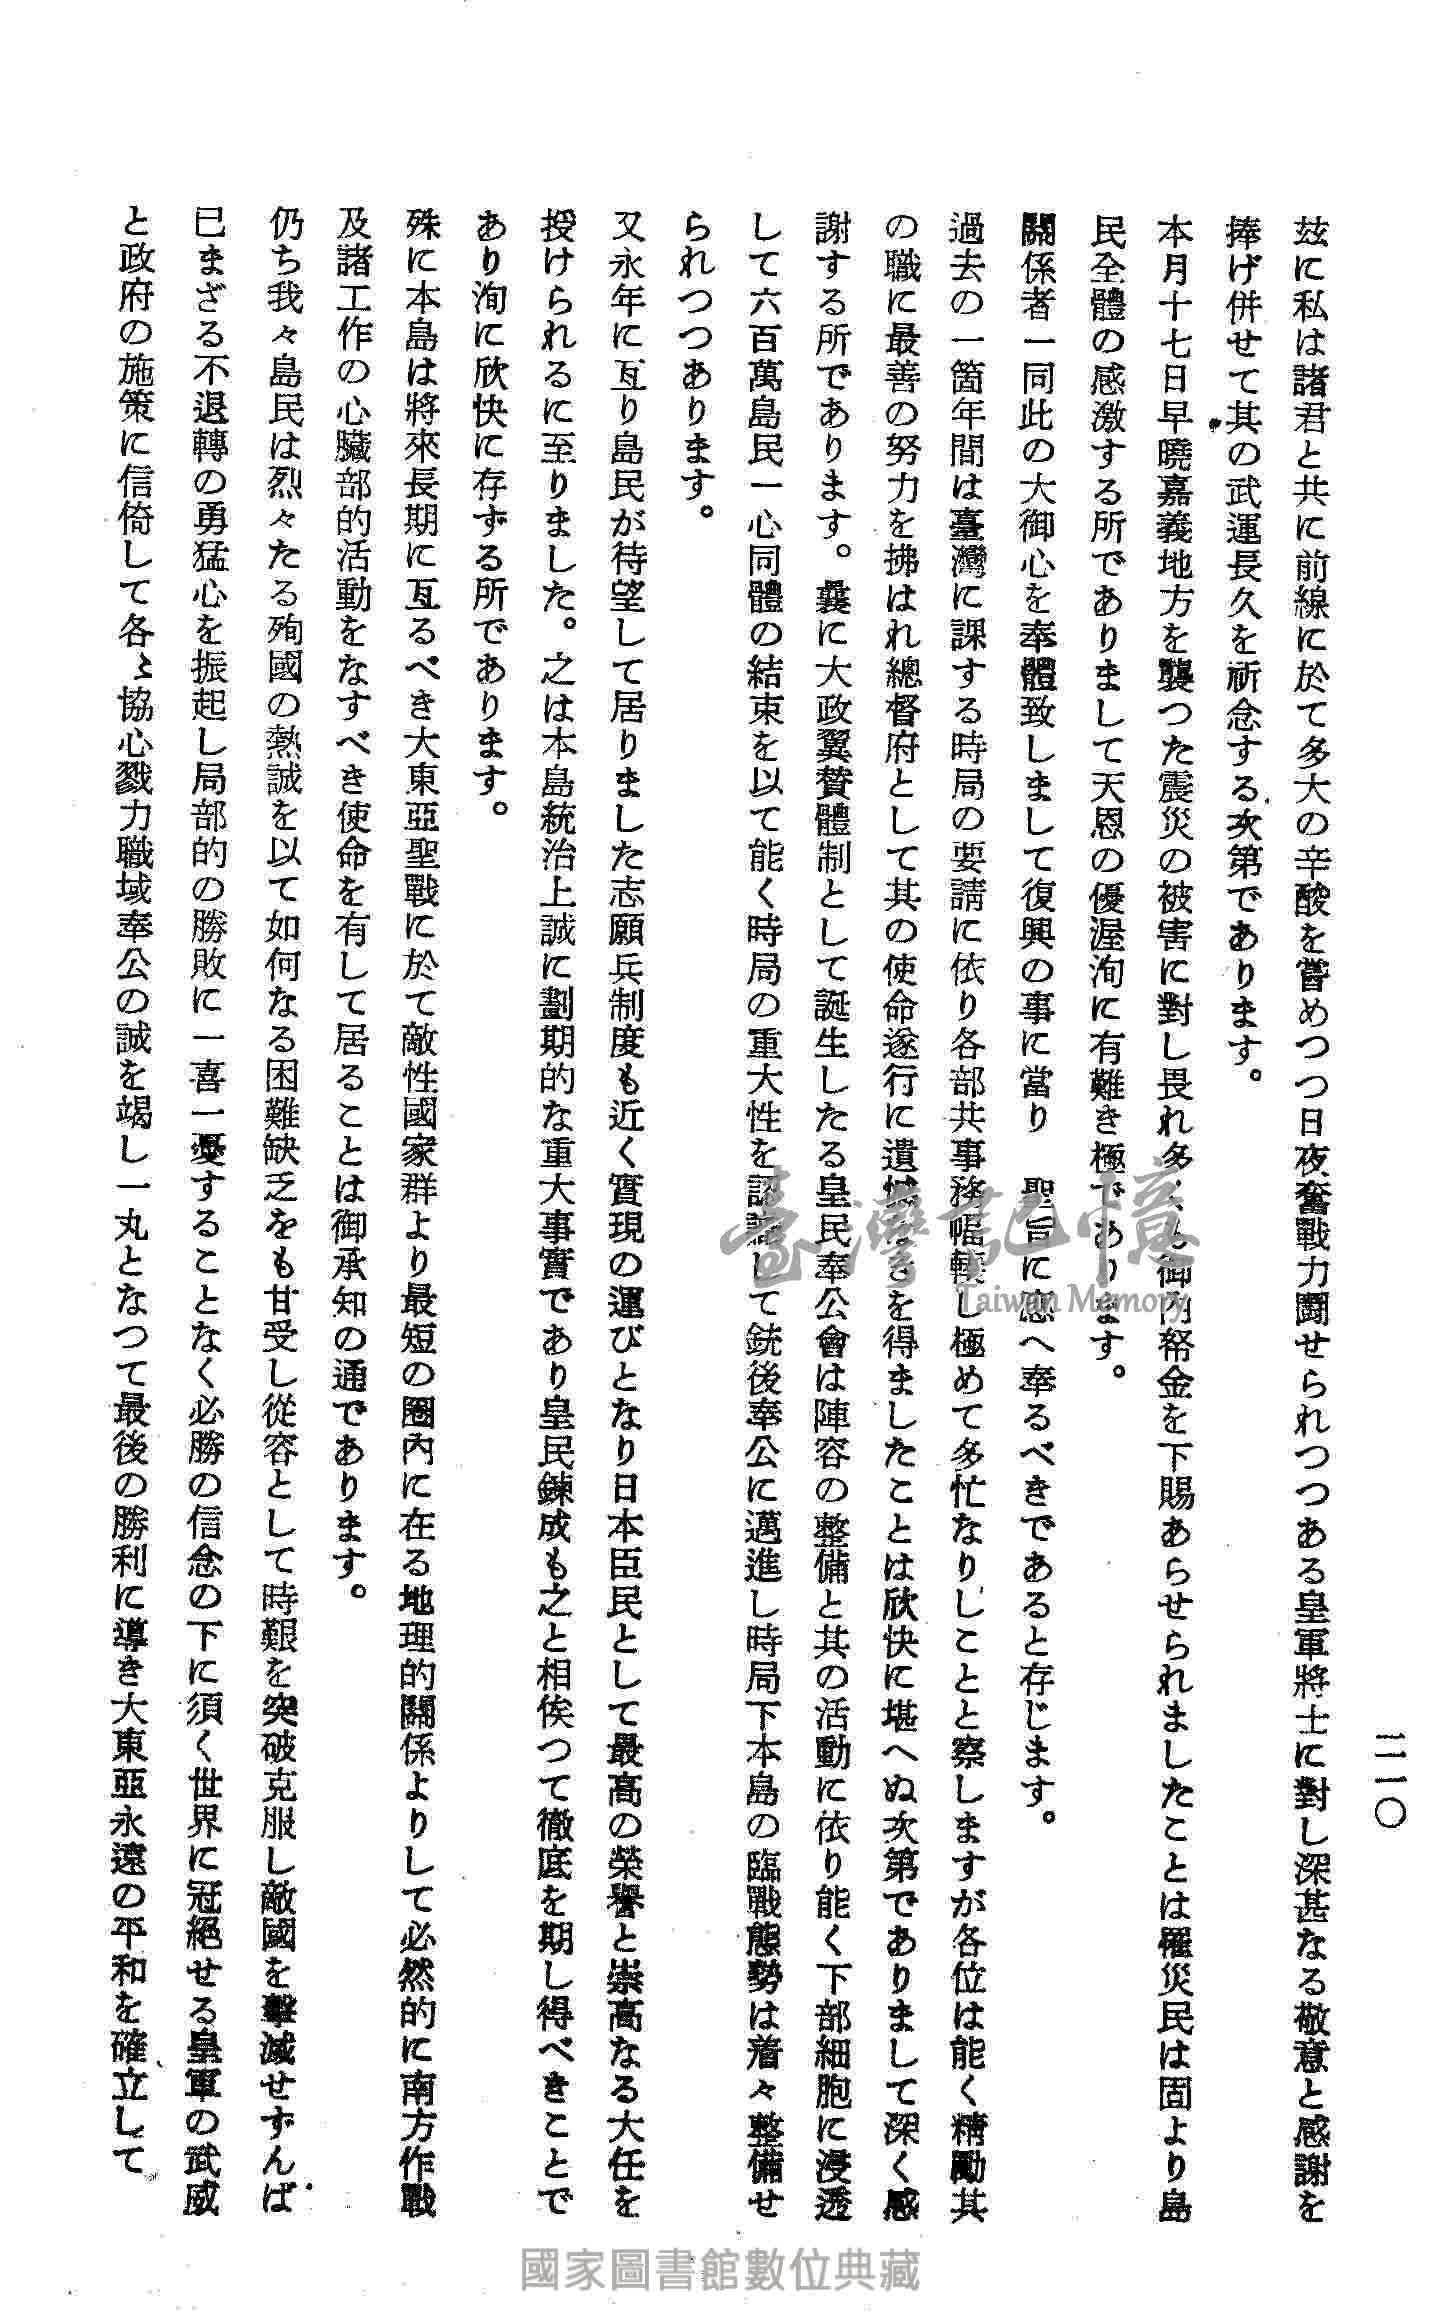 二一〇
玆に私は諸君と共に前線に於て多大の辛酸を嘗めつつ日夜奮戰力鬪せられつつある皇軍將士に對し深甚なる敬意と感謝を
捧げ併せて其の武運長久を祈念する次第であります。
本月十七日早曉嘉義地方を襲つた震災の被害に對し畏れ多くも御內帑金を下賜あらせられましたことは罹災民は固より島
民全體の感激する所でありまして天恩の優渥洵に有難き極であります。
關係者一同此の大御心を奉體致しまして復興の事に當り　聖旨に應へ奉るべきであると存じます。
過去の一箇年間は臺灣に課する時局の要請に依り各部共事務輻輳し極めて多忙なりしことと察しますが各位は能く精勵其
の職に最善の努力を拂はれ總督府として其の使命遂行に遺憾なきを得ましたことは欣快に堪へぬ次第でありまして深く感
謝する所であります。曩に大政翼贊體制として誕生したる皇民奉公會は陣容の整備と其の活動に依り能く下部細胞に浸透
して六百萬島民一心同體の結束を以て能く時局の重大性を認識して銃後奉公に邁進し時局下本島の臨戰態勢は着々整備せ
られつつあります。
又永年に亙り島民が待望して居りました志願兵制度も近く實現の運びとなり日本臣民として最高の榮譽と崇高なる大任を
授けられるに至りました。之は本島統治上誠に劃期的な重大事實であり皇民鍊成も之と相俟つて徹底を期し得べきことで
あり洵に欣快に存ずる所であります。
殊に本島は將來長期に亙るべき大東亞聖戰に於て敵性國家群より最短の圈內に在る地理的關係よりして必然的に南方作戰
及諸工作の心臟部的活動をなすべき使命を有して居ることは御承知の通であります。
仍ち我々島民は烈々たる殉國の熱誠を以て如何なる困難缺乏をも甘受し從容として時艱を突破克服し敵國を擊滅せずんば
已まざる不退轉の勇猛心を振起し局部的の勝敗に一喜一憂することなく必勝の信念の下に須く世界に冠絕せる皇軍の武威
と政府の施策に信倚して各〻協心戮力職域奉公の誠を竭し一丸となつて最後の勝利に導き大東亞永遠の平和を確立して
臺灣記憶
Taiwan Memory
國家圖書館數位典藏